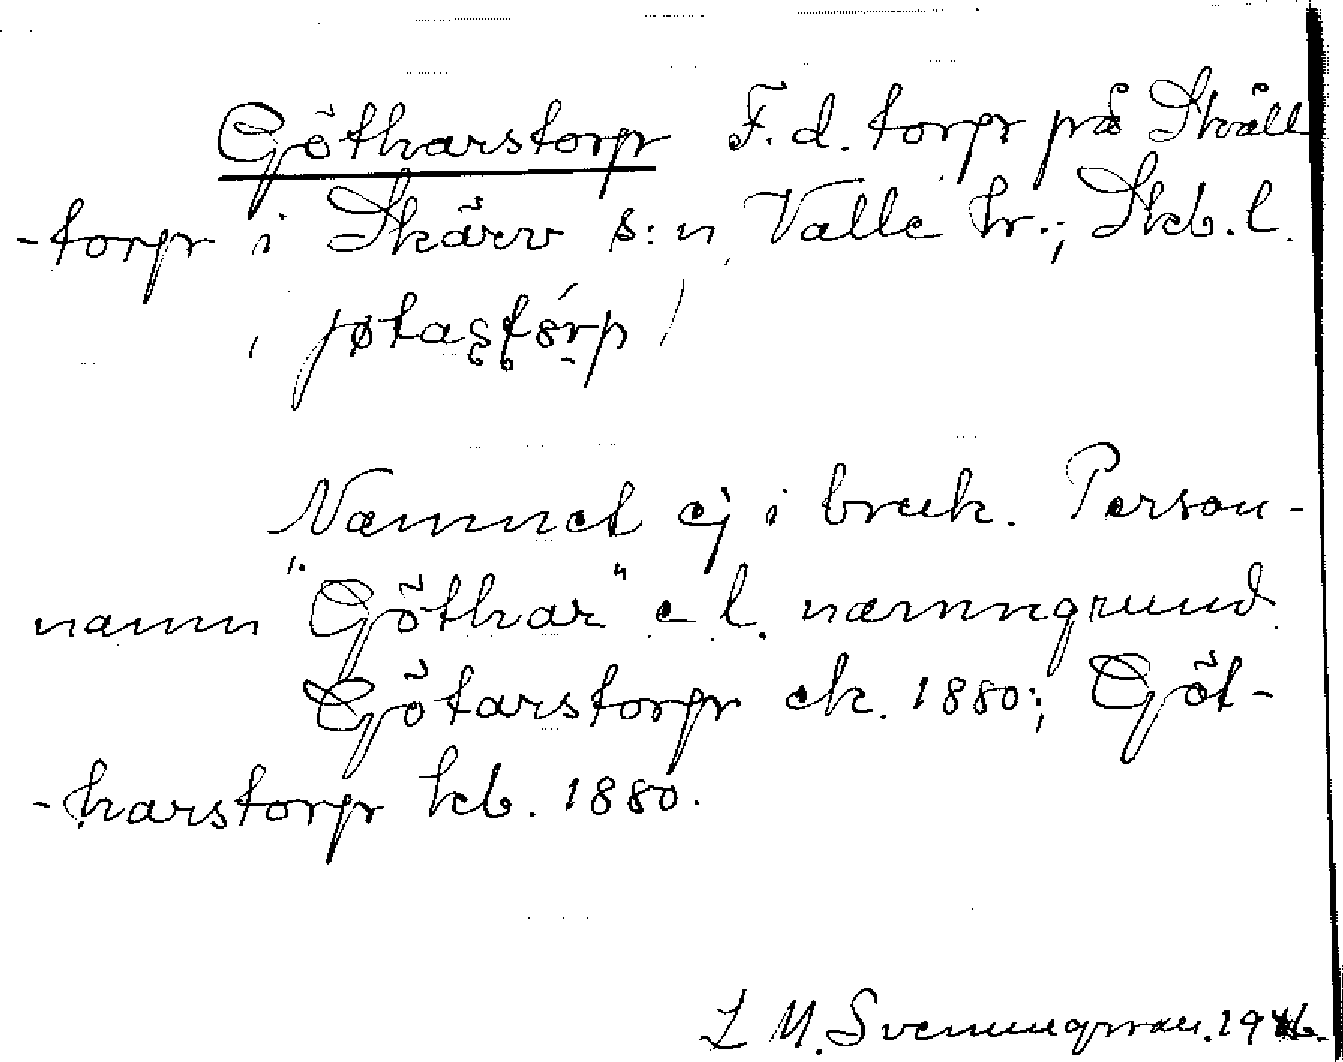 Götharstorp F.d. torp på Skäll
-torp i Skärv s:n, Valle hr.; Skb. l.
Namnet ej i bruk. Person-
namn "Göthar" e l. namngrund.
Götarstorp ek. 1880; Göt-
-harstorp kb. 1880.
L M. Svenungsson. 1946.